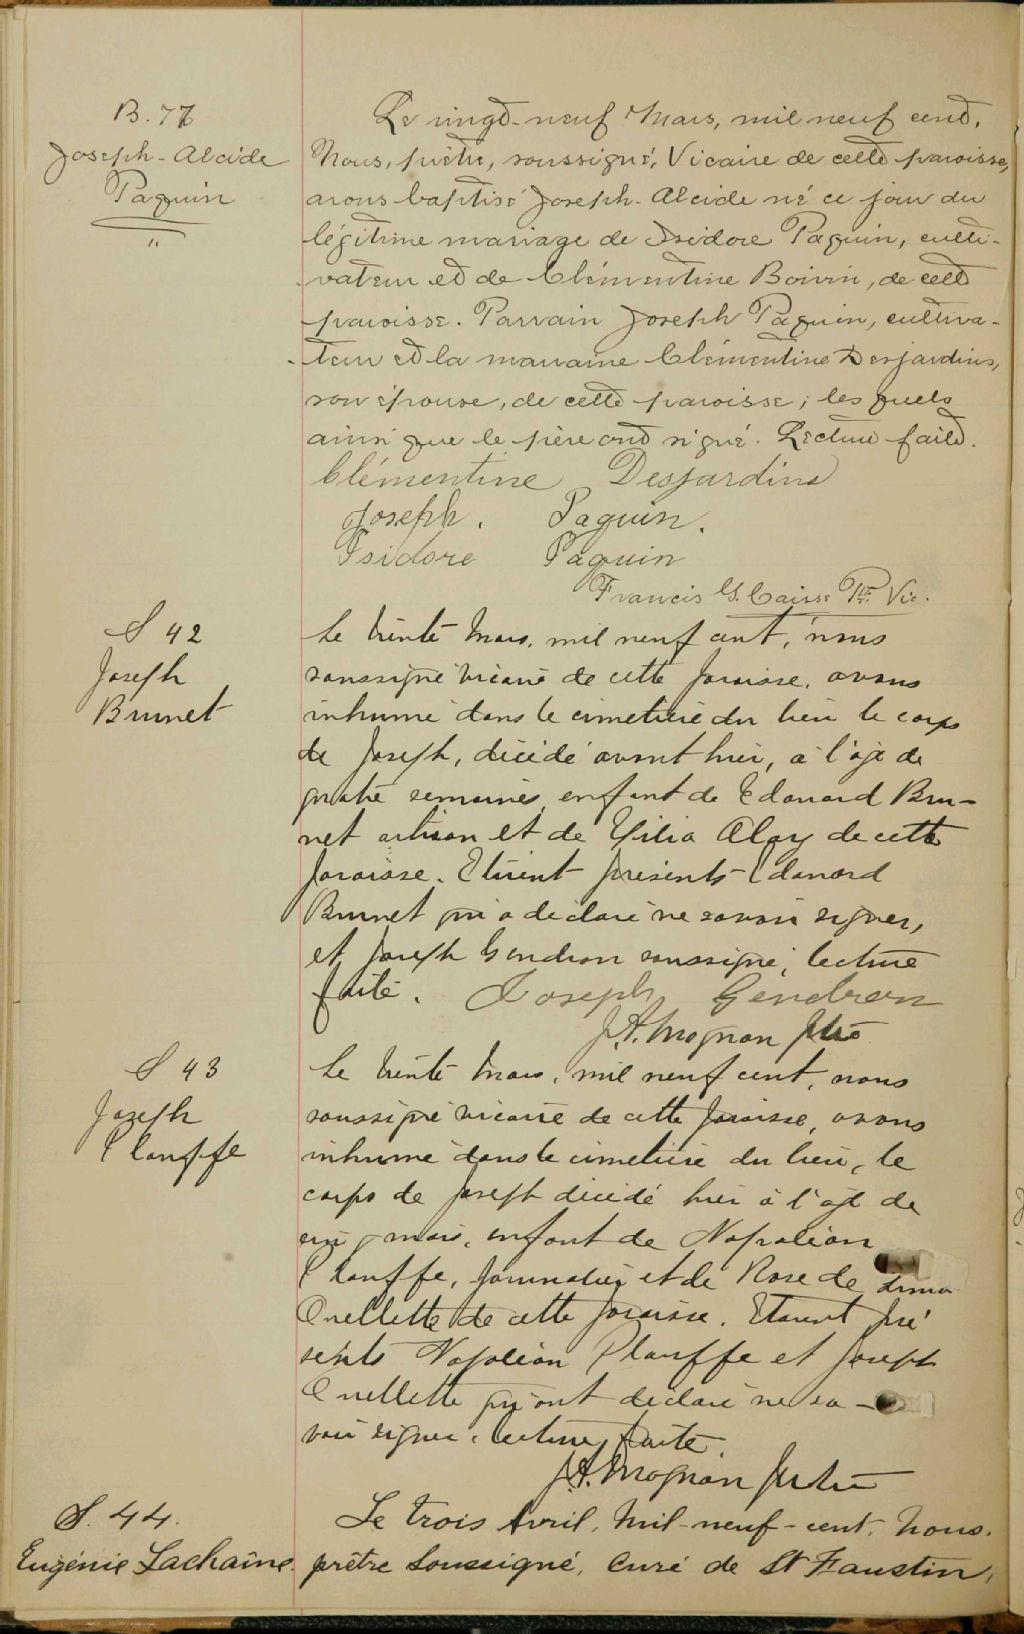 B. 77
Joseph-Alcide
Paquin
"
Le vingt-neuf Mars, mil neuf cent,
Nous, prêtre, soussigné, Vicaire de cette paroisse,
avons baptisé Joseph-Alcide né ce jour du
légitime mariage de Isidore Paquin, culti-
vateur et de Clémentine Boivin, de cette
paroisse. Parrain Joseph Paquin, cultiva-
teur et la marraine Clémentine Desjardins,
son épouse, de cette paroisse; les quels
ainsi que le père ont signé. Lecture faite.
Clémentine Desjardins
Joseph. Paquin.
Isidore Paquin
Francis G. Caisse Ptre Vic.
S 42
Joseph
Brunet
Le trente Mars, mil neuf cent, nous
soussigné vicaire de cette paroisse, avons
inhumé dans le cimetière du lieu le corps
de Joseph, décédé avant hier, à l'age de
quatre semaines, enfant de Edouard Bru-
net artisan et de de cette
paroisse. Etaient présents Edouard
Brunet qui a déclaré ne savoir signer,
et Joseph Gendron soussigné, lecture
faite. Joseph Gendron
J.A. Mognan ptre
S 43
Joseph
Plouffe
Le trente Mars, mil neuf cent, nous
soussigné vicaire de cette paroisse, avons
inhumé dans le cimetière du lieu, le
corps de Joseph décédé hier à l'age de
un mois, enfant de Napoléon
Plouffe, journalier et de Rose de Lima
Ouellette de cette paroisse. Etaient pré
sents Napoléon Plouffe et Joseph
Ouellette qui ont déclaré ne sa-
voir signer, lecture faite.
J.A. Mognan ptre
S. 44.
Eugénie Lachaine.
Le trois Avril, Mil-neuf-cent, Nous.
prêtre Soussigné, Curé de St Faustin,